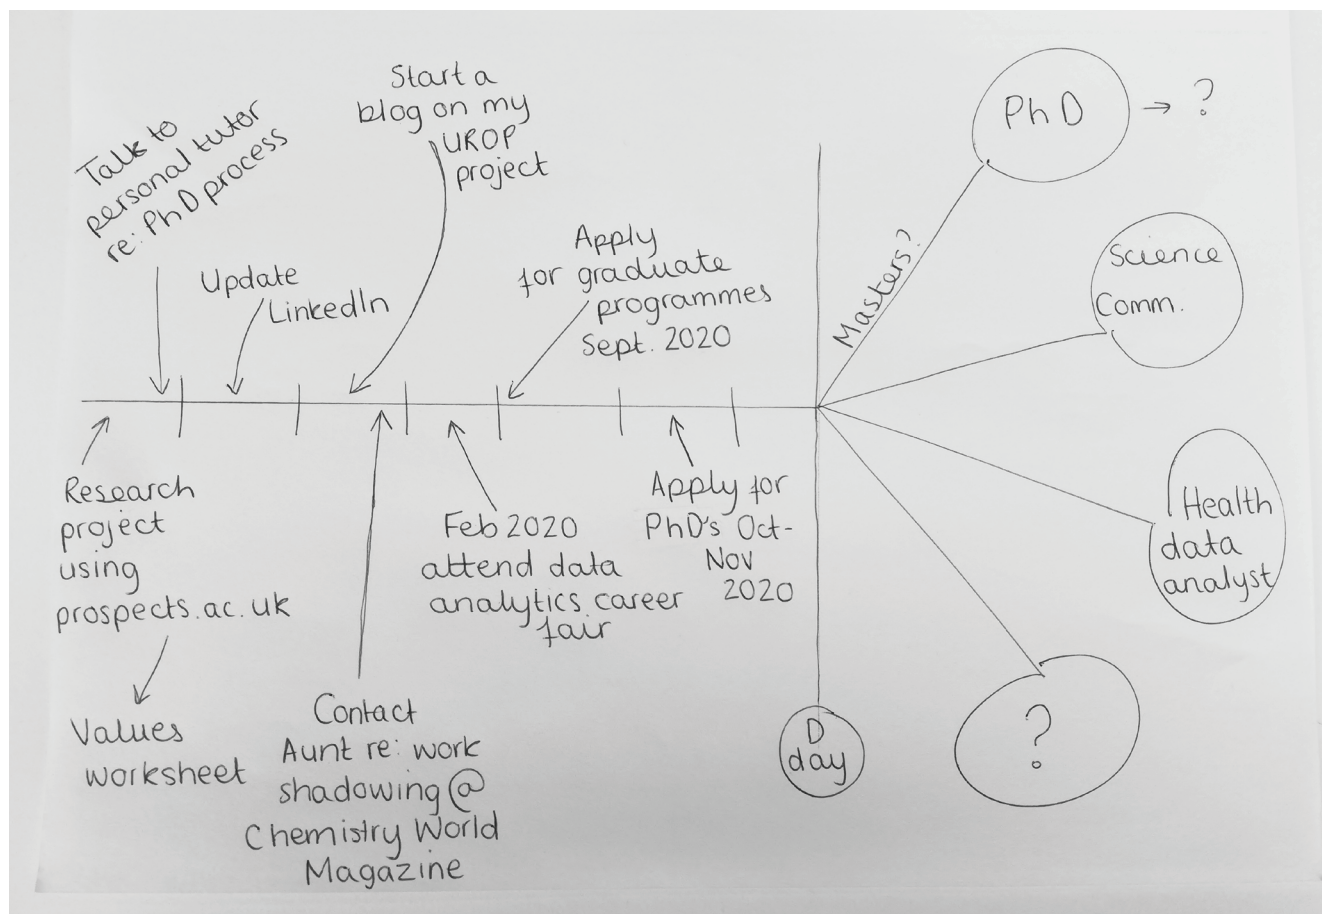 Talk to
personal tutor
re: PhD process
Start a
blog on my
UROP
project
Update
LinkedIn
Apply
for graduate
programmes
Sept. 2020
Research
project
using
prospects.ac.uk
Values
worksheet
Contact
Aunt re: work
shadowing @
Chemistry World
Magazine
Feb 2020
attend data
analytics career
fair
Apply for
PhD's Oct-
Nov
2020
D
day
Masters?
PhD → ?
Science
Comm.
Health
data
analyst
?